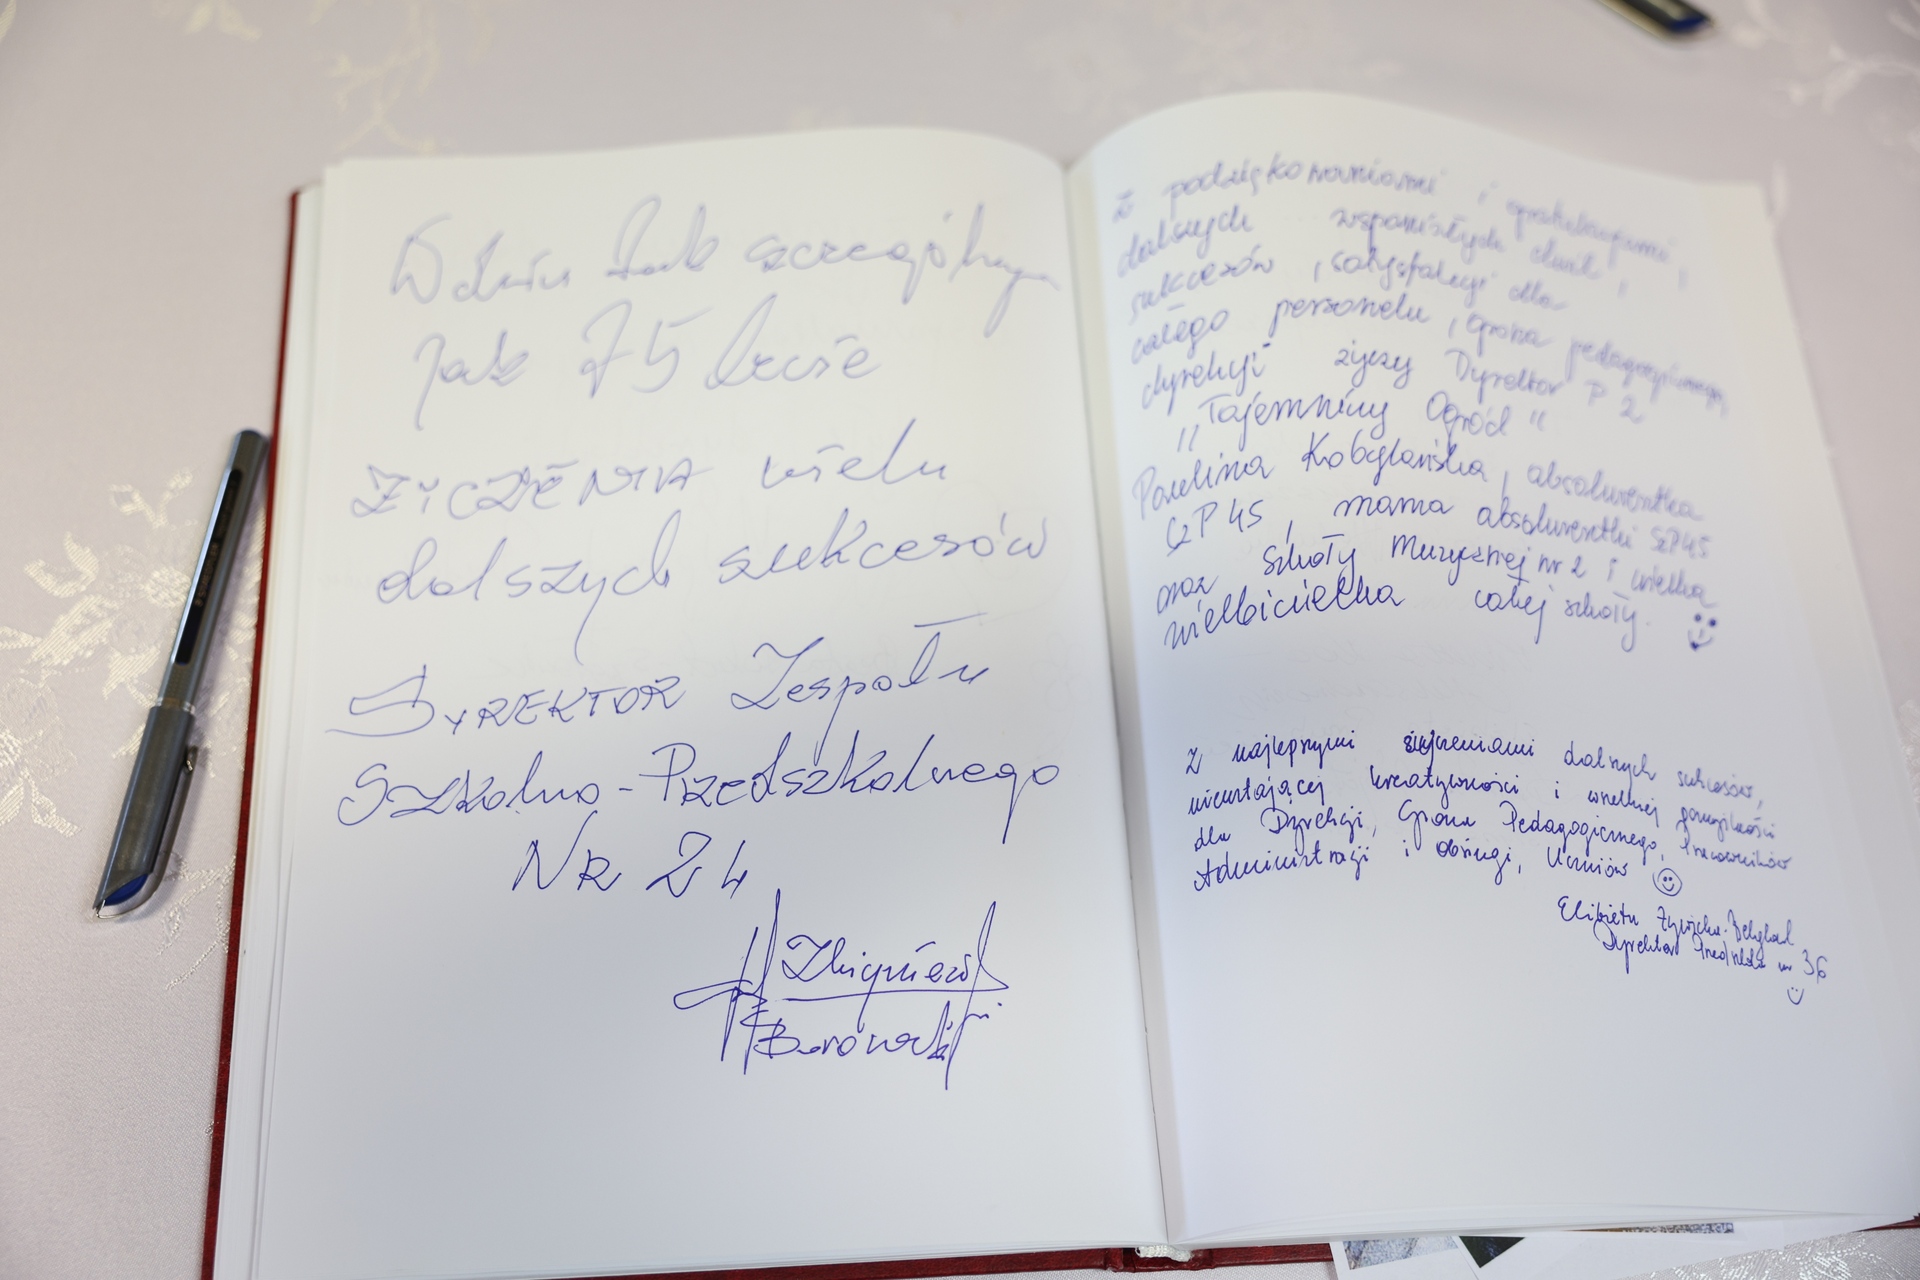 W dniu tak szczególnym
jak 75 lecie
ŻYCZENIA wielu
dalszych sukcesów
DYREKTOR Zespołu
Szkolno-Przedszkolnego
NR 24
Zbigniew
Borowski
Z podziękowaniami i gratulacjami,
dalszych wspaniałych chwil,
sukcesów, satysfakcji dla
całego personelu, grona pedagogicznego,
dyrekcji życzy Dyrektor P 2
"Tajemniczy Ogród"
Paulina Kobylańska, absolwentka
SP 45, mama absolwentki SP45
oraz Szkoły Muzycznej nr 2 i wielka
wielbicielka całej szkoły.
Z najlepszymi życzeniami dalszych sukcesów,
nieustającej kreatywności i wszelkiej pomyślności
dla Dyrekcji, Grona Pedagogicznego, Pracowników
Administracji i obsługi, Uczniów
Elżbieta
Dyrektor Przedszkola nr 36